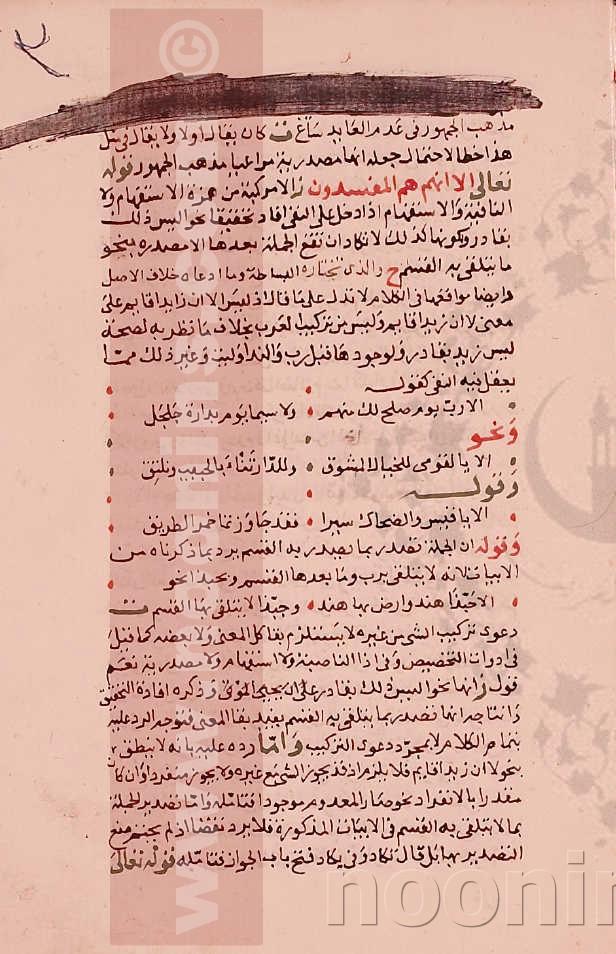 مذهب الجمهور فى عدم العايد ساغ ت كان يقال اولا ولا يقال فى مثل
هذا خطا لاحتمال جعله انها مصدرية مراعيا مذهب الجمهور قوله
تعالى الا انهم هم المفسدون ز الا مركبة من همزة الاستفهام ولا
النافية والاستفهام اذا دخل على النفى افاد تحقيقا نحو اليس ذلك
بقادر ولكونها كذلك لا تكاد ان تقع الجملة بعدها الا مصدره بنحو
ما يتلقى به القسم ح والذى نختاره البساطة وما ادعاه خلاف الاصل
وايضا مواقعها فى الكلام لا تدل على ما قال اذ ليس الا ان زايدا قايم على
معنى لا ان زيدا قايم وليس من تركيب العرب بخلاف ما نظر به لصحة
ليس زيد بقادر ولوجودها قبل رب والندا وليت وغير ذلك مما
يعقل فيه النفى كقوله
الا رب يوم صلح لك منهم • ولا سيما يوم بدارة جلجل
ونحو
الا يا لقومى للخيال المشوق • وللدار تنأى بالحبيب ونلتقى
وقوله
الا يا قيس والضحاك سيرا • فقد جاوزتما خمر الطريق
وقوله ان الجملة تصدر بما يصدر به القسم يرد بما ذكرناه من
الابيات لانه لا يتلقى برب وما بعدها القسم وبحبذا نحو
الا حبذا هند وارض بها هند • وحبذا لا يتلقى بها القسم ت
دعوى تركيب الشى من غيره لا يستلزم بقا كل المعنى ولا بعضه كما قيل
فى ادوات التحضيص وفى اذا الناصبة ولا استفهام ولا مصدرية نعم
قول ز انها نحو اليس ذلك بقادر على ان يحيى الموتى وذكره افادة التحقيق
وانتاجه انها تصدر بما يتلقى به القسم يفيد بقا المعنى فتوجه الرد عليه
بتمام الكلام لا بمجرد دعوى التركيب واما رده عليه بانه لا ينطق
بنحو لا ان زيدا قايم فلا يلزم اذ قد يجوز الشى مع غيره ولا يجوز منفردا وان كان
مقدرا بالانفراد نحو صار المعدوم موجودا فتامله واما تصدير الجملة
بما لا يتلقى به القسم فى الابيات المذكورة فلا يرد نقضا اذ لم يجزم بمنع
التصدير بها بل قال تكاد وفى يكاد فتح باب الجواز فتامله قوله تعالى